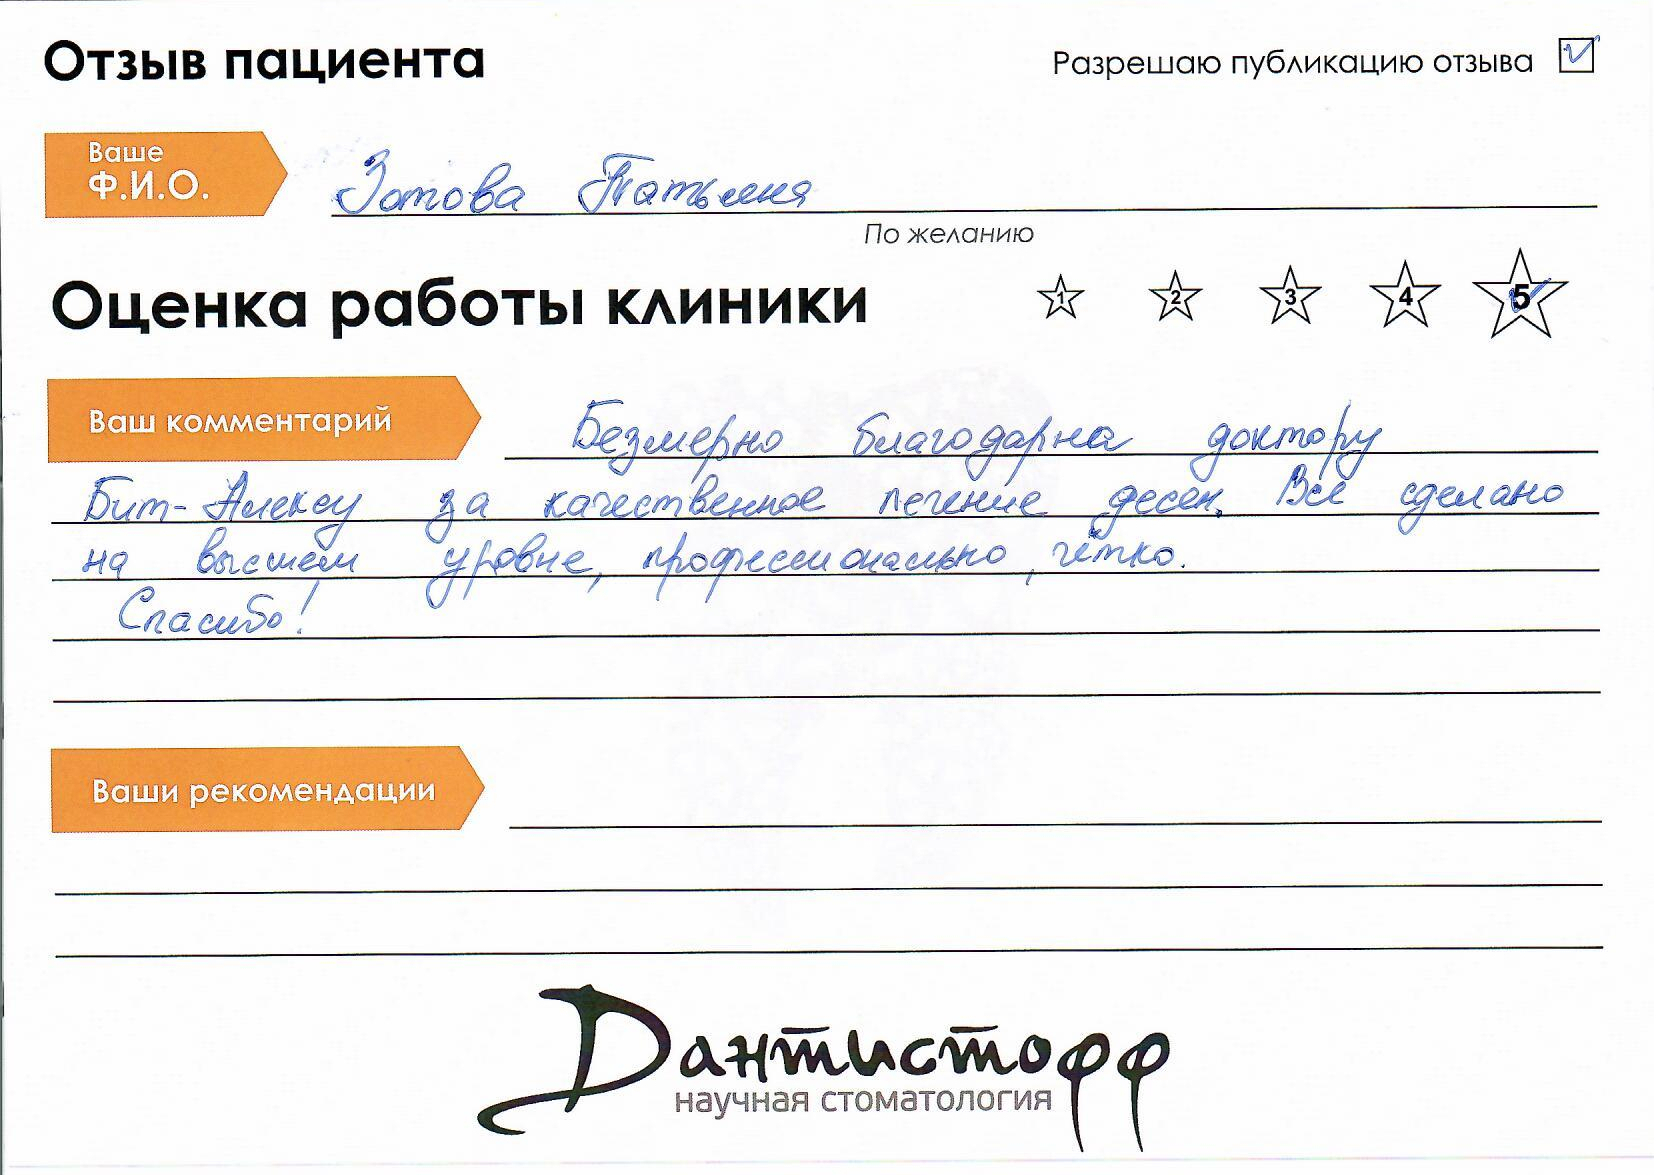 Отзыв пациента
Разрешаю публикацию отзыва
Ваше
Ф.И.О.
Зотова Татьяна
По желанию
Оценка работы клиники
1 2 3 4 5
Ваш комментарий
Безмерно благодарна доктору
Бит-Алексу за качественное лечение десен. Всё сделано
на высшем уровне, профессионально, чётко.
Спасибо!
Ваши рекомендации
Дантистофф
научная стоматология